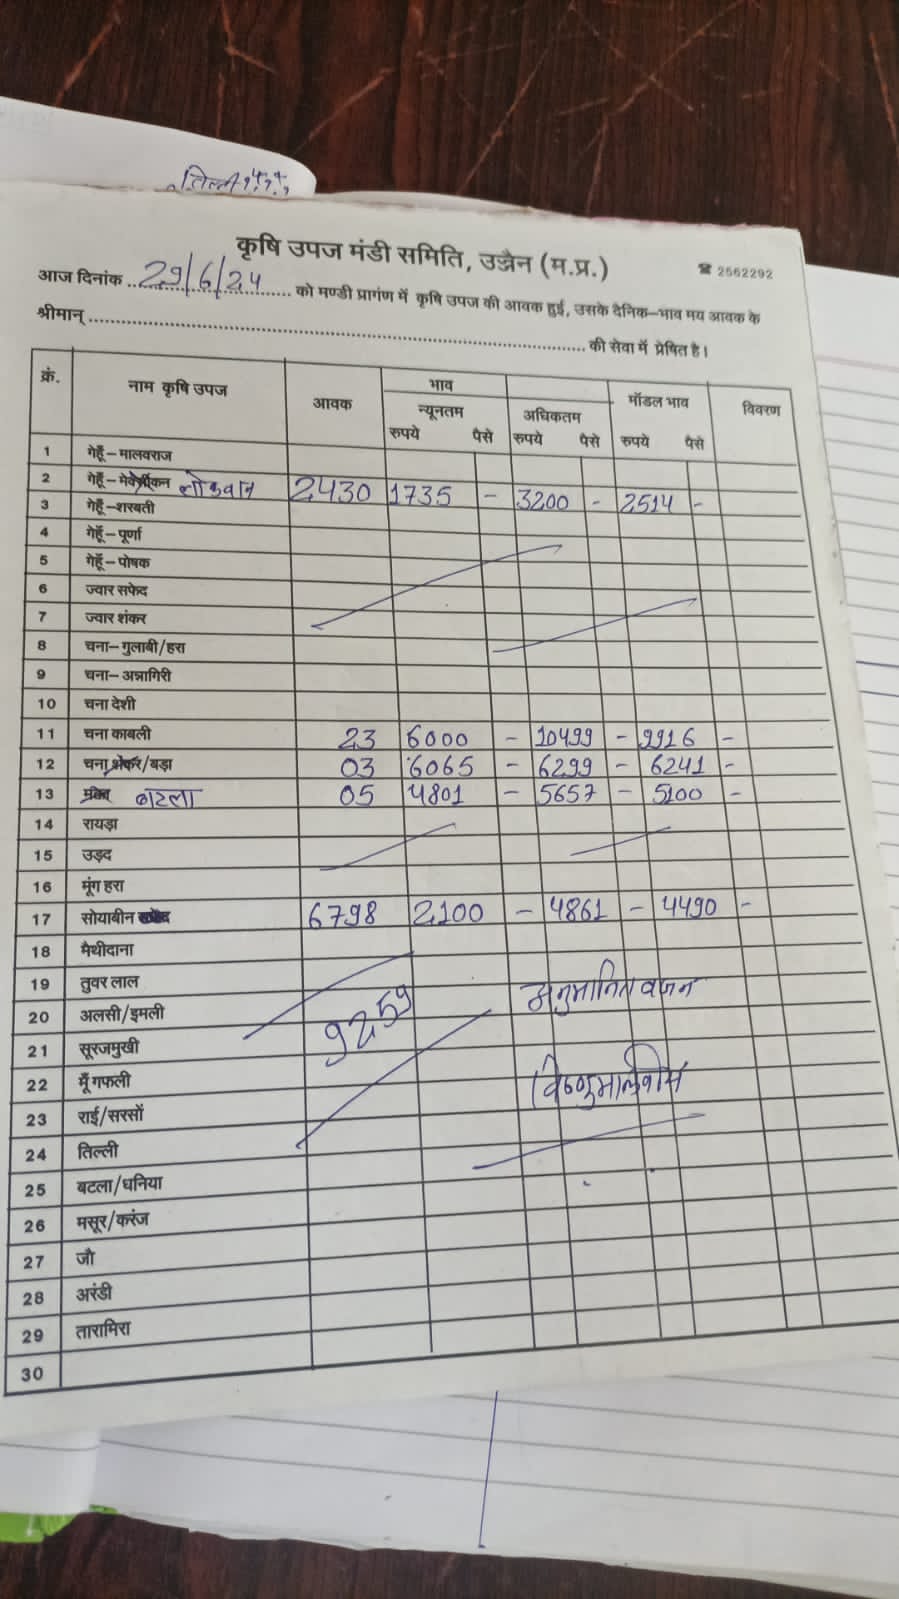 तिल्ली
कृषि उपज मंडी समिति, उज्जैन (म.प्र.)
☎ 2562292
आज दिनांक 29/6/24 को मण्डी प्रागंण में कृषि उपज की आवक हुई, उसके दैनिक-भाव मय आवक के
श्रीमान् की सेवा में प्रेषित है।
क्रं. नाम कृषि उपज आवक भाव मॉडल भाव विवरण
न्यूनतम अधिकतम
रुपये पैसे रुपये पैसे रुपये पैसे
1 गेहूँ-मालवराज
2 गेहूँ- लोकवान 2430 1735 - 3200 - 2514 -
3 गेहूँ-शरबती
4 गेहूँ-पूर्णा
5 गेहूँ-पोषक
6 ज्वार सफेद
7 ज्वार शंकर
8 चना-गुलाबी/हरा
9 चना-अन्नागिरी
10 चना देशी
11 चना काबली 23 6000 - 10499 - 9916 -
12 चना शंकर/बड़ा 03 6065 - 6299 - 6241 -
13 बटला 05 4801 - 5657 - 5100 -
14 रायड़ा
15 उड़द
16 मूंग हरा
17 सोयाबीन 6798 2100 - 4861 - 4490 -
18 मैथीदाना
19 तुवर लाल
20 अलसी/इमली
9259 अनुमानित वजन
21 सूरजमुखी
22 मूँगफली
23 राई/सरसों
24 तिल्ली
25 बटला/धनिया
26 मसूर/करंज
27 जौ
28 अरंडी
29 तारामिरा
30